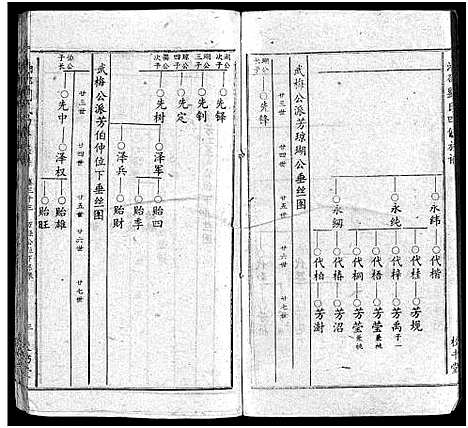 武梅公派芳琼瑚公垂丝图
廿三世
廿四世
廿五世
廿六世
廿七世
永纬
代楷
代桂
芳规
永纯
代梓
芳禹
代梧
芳莹
兼祧
代桐
芳莹
兼祧
永纲
代椿
芳沼
代柏
芳澍
瑚公
长子
先锋
次子
先铎
瑚公
三子
先钊
琼公
四子
先定
次子
先树
泽军
贻四
贻季
泽兵
贻财
武梅公派芳伯仲位下垂丝图
廿三世
廿四世
廿五世
廿六世
廿七世
长子
先中
泽权
贻雄
贻旺